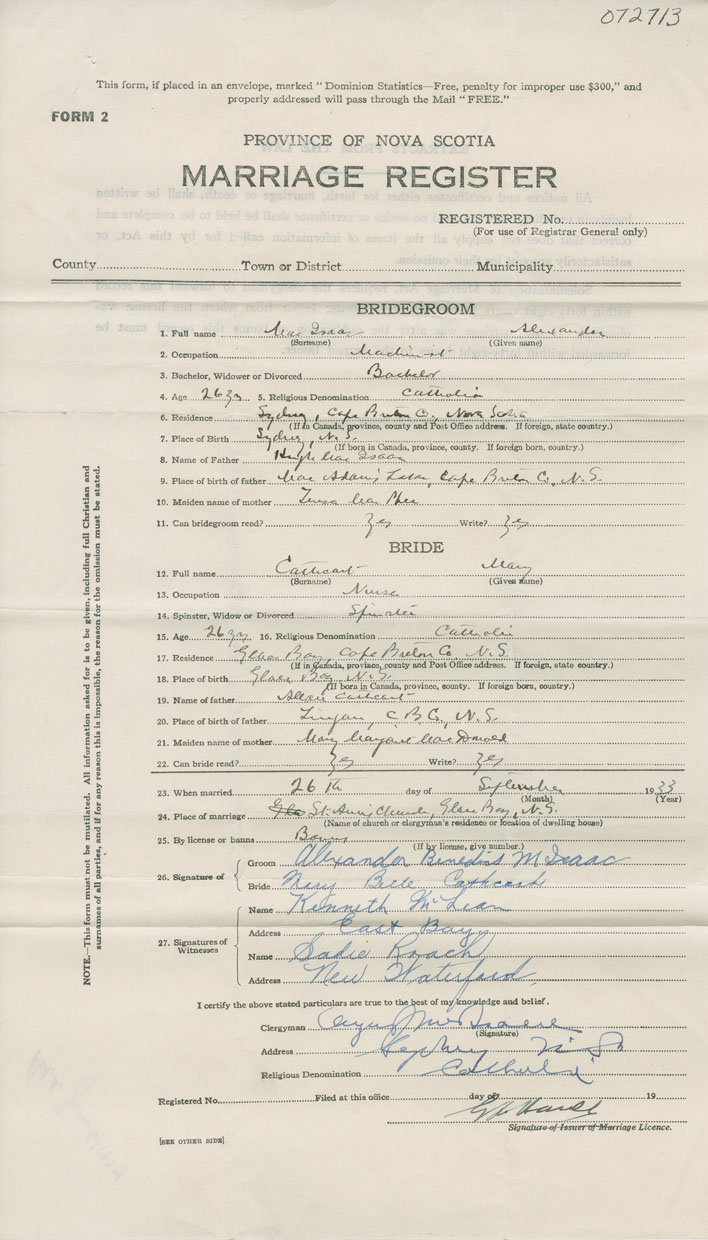 072713
This form, if placed in an envelope, marked "Dominion Statistics—Free, penalty for improper use $300," and
properly addressed will pass through the Mail "FREE."
FORM 2
PROVINCE OF NOVA SCOTIA
MARRIAGE REGISTER
REGISTERED No.
(For use of Registrar General only)
County Town or District Municipality
BRIDEGROOM
1. Full name Mac Isaac Alexander
(Surname) (Given name)
2. Occupation Machinist
3. Bachelor, Widower or Divorced Bachelor
4. Age 26 yrs 5. Religious Denomination Catholic
6. Residence Sydney, Cape Breton Co, Nova Scotia
(If in Canada, province, county and Post Office address. If foreign, state country.)
7. Place of Birth Sydney, N.S.
(If born in Canada, province, county. If foreign born, country.)
8. Name of Father Hugh Mac Isaac
9. Place of birth of father Mac Adam's Lake, Cape Breton Co, N.S.
10. Maiden name of mother Mac Phee
11. Can bridegroom read? Yes Write? Yes
BRIDE
12. Full name Cathcart Mary
(Surname) (Given name)
13. Occupation Nurse
14. Spinster, Widow or Divorced Spinster
15. Age 26 yrs 16. Religious Denomination Catholic
17. Residence Glace Bay, Cape Breton Co, N.S.
(If in Canada, province, county and Post Office address. If foreign, state country.)
18. Place of birth Glace Bay, N.S.
(If born in Canada, province, county. If foreign born, country.)
19. Name of father Allan Cathcart
20. Place of birth of father Lingan, C.B.C., N.S.
21. Maiden name of mother Mary Margaret MacDonald
22. Can bride read? Yes Write? Yes
23. When married 26 th day of September 1933
(Month) (Year)
24. Place of marriage St. Ann's Church, Glace Bay, N.S.
(Name of church or clergyman's residence or location of dwelling house)
25. By license or banns Banns
(If by license, give number.)
26. Signature of
Groom Alexander Benedict McIsaac
Bride Mary Belle Cathcart
27. Signatures of Witnesses
Name Kenneth McLean
Address East Bay
Name Sadie Roach
Address New Waterford
I certify the above stated particulars are true to the best of my knowledge and belief.
Clergyman
(Signature)
Address
Religious Denomination Catholic
Registered No. Filed at this office day of 19
Signature of Issuer of Marriage Licence.
[SEE OTHER SIDE]
NOTE.—This form must not be mutilated. All information asked for is to be given, including full Christian and
surnames of all parties, and if for any reason this is impossible, the reason for the omission must be stated.